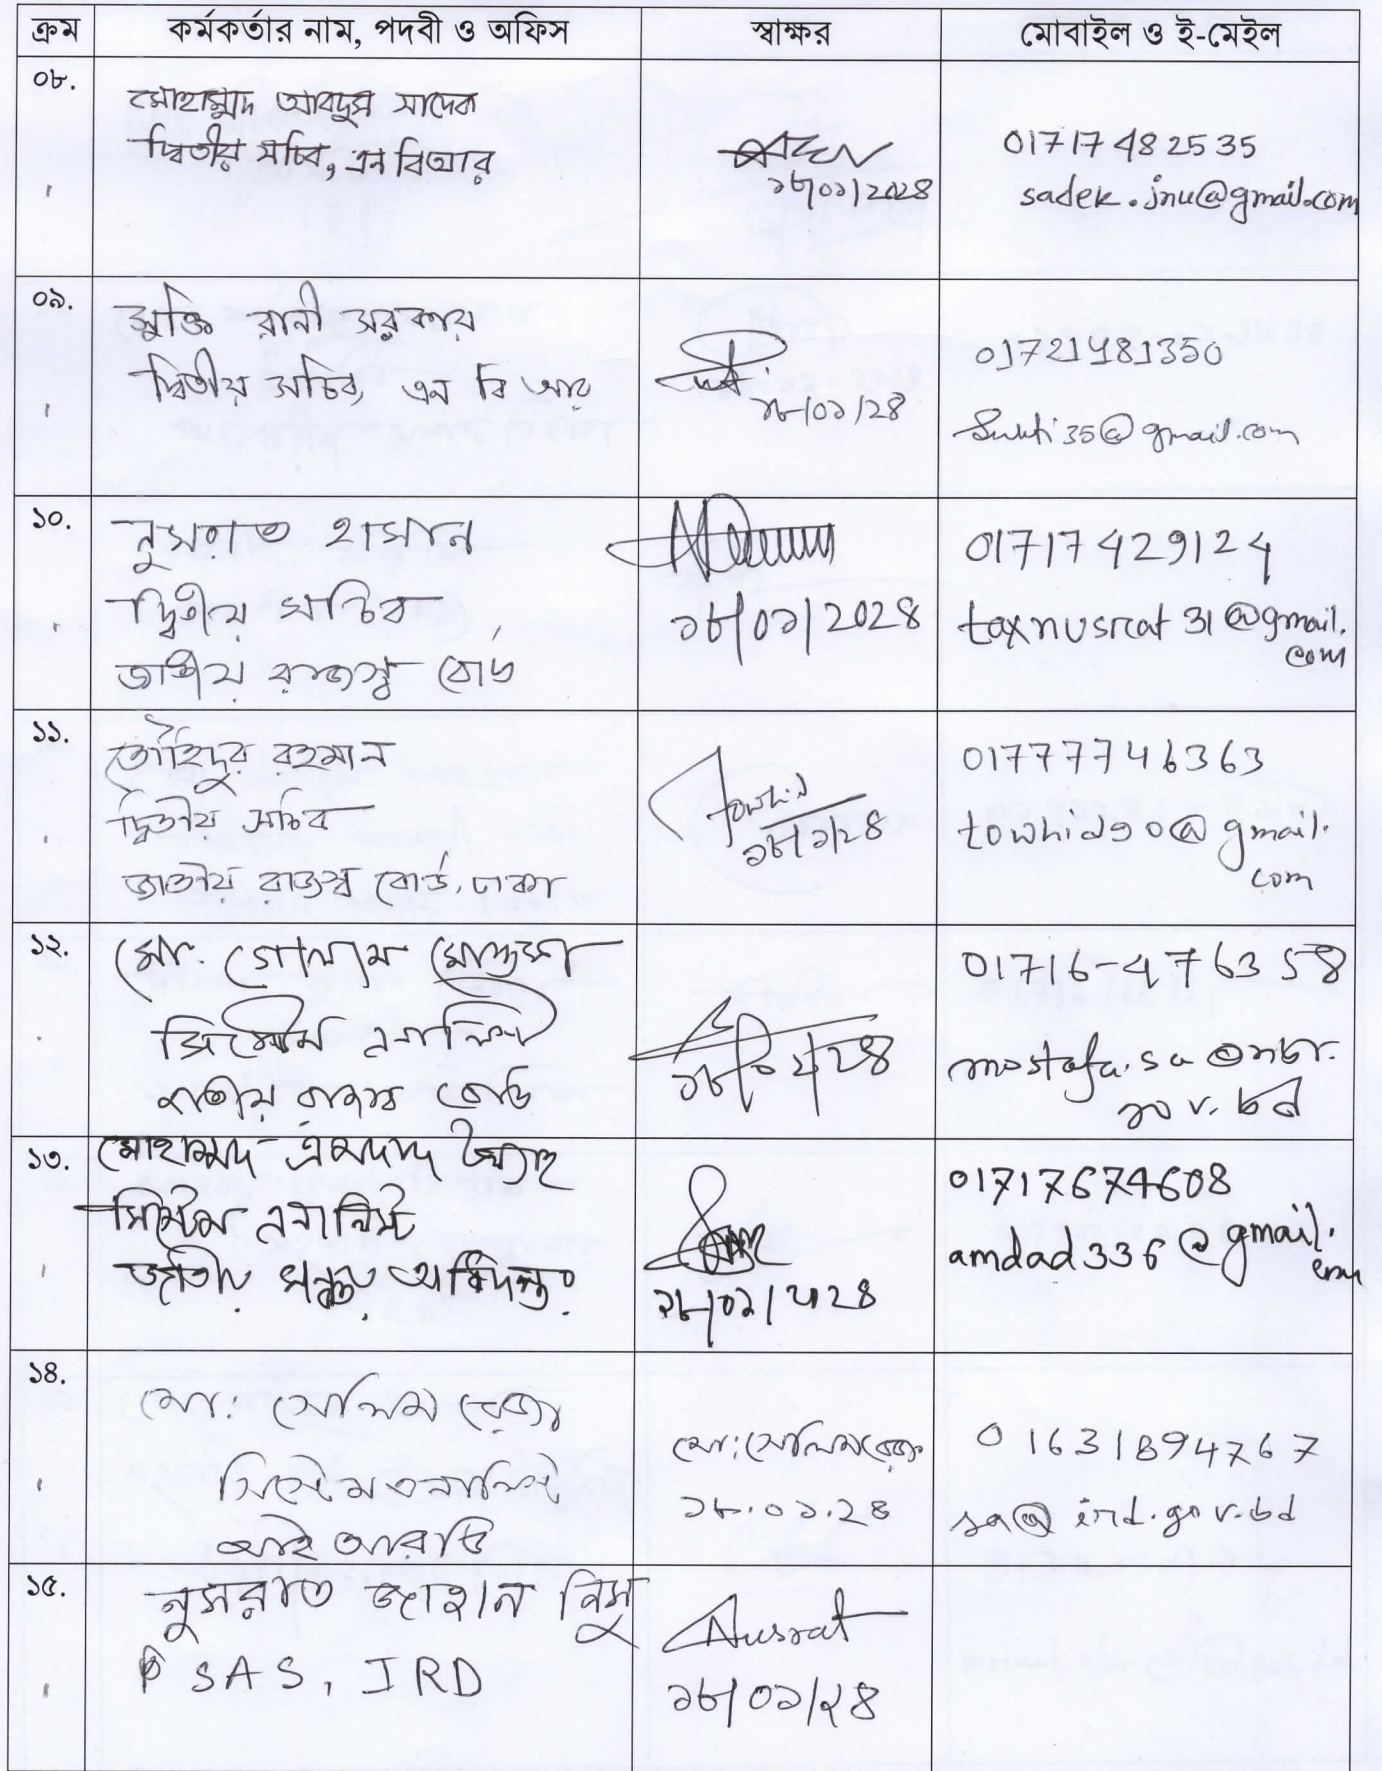 ক্রম কর্মকর্তার নাম, পদবী ও অফিস স্বাক্ষর মোবাইল ও ই-মেইল
০৮.
মোহাম্মাদ আবদুস সাদেক
দ্বিতীয় সচিব, এনবিআর
১৮/০১/২০২৪
01717482535
sadek.jnu@gmail.com
০৯.
মুক্তি রানী সরকার
দ্বিতীয় সচিব, এন বি আর
১৮/০১/২৪
01721981350
35@gmail.com
১০.
নুসরাত হাসান
দ্বিতীয় সচিব
জাতীয় রাজস্ব বোর্ড
১৮/০১/২০২৪
01717429124
taxnusrat31@gmail.
com
১১.
তৌহিদুর রহমান
দ্বিতীয় সচিব
জাতীয় রাজস্ব বোর্ড, ঢাকা
Towhid
১৮/১/২৪
01777746363
towhid90@gmail.
com
১২.
মো. গোলাম মোস্তফা
সিস্টেম এনালিস্ট
জাতীয় রাজস্ব বোর্ড
১৮/০১/২৪
01716-476358
mostafa.sa@nbr.
gov.bd
১৩.
মোহাম্মদ এমদাদ উল্যাহ
সিস্টেম এনালিস্ট
জাতীয় সঞ্চয় অধিদপ্তর
১৮/০১/২০২৪
01717674608
amdad336@gmail.
com
১৪.
মো: সেলিম রেজা
সিস্টেম এনালিস্ট
আই আরডি
মো: সেলিম রেজা
১৮.০১.২৪
01631894767
sa@ird.gov.bd
১৫.
নুসরাত জাহান নিসু
SAS, IRD
Nusrat
১৮/০১/২৪